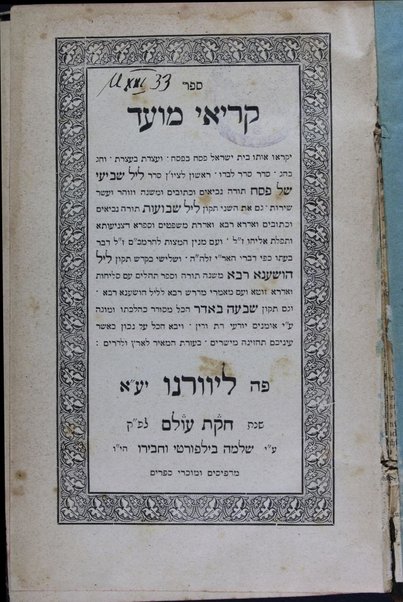 ספר
קריאי מועד
יקראו אותו בית ישראל פסח בפסח ׃ ועצרת בעצרת ׳ וחג
בחג ׳ סדר סדר לבדו ׳ ראשון לציו״ן סדר ליל שביעי
של פסח תורה נביאים וכתובים ומשנה וזוהר ועשר
שירות ׳ גם את השני תקון ליל שבועות תורה נביאים
וכתובים ואדרא רבא ואדרת משפטים וספרא דצניעותא
ותפלת אליהו ז״ל ׳ ועם מנין המצות להרמב״ם ז״ל דבר
בעתו כפי דברי האר״י זלה״ה ׳ ושלישי בקדש תקון ליל
הושענא רבא משנה תורה וספר תהלים עם סליחות
ואדרא זוטא ועם מאמרי מדרש רבא לליל הושענא רבא ׳
וגם תקון שבעה באדר הכל מסודר כהלכתו ומוגה
ע״י אומנים יודעי דת ודין ׳ ויבא הכל על נכון כאשר
עיניכם תחזינה מישרים ׳ בעזרת המאיר לארץ ולדרים ׃
פה ליוורנו יע״א
שנת חקת עולם לפ״ק
ע״י שלמה בילפורטי וחבירו הי״ו
מדפיסים ומוכרי ספרים